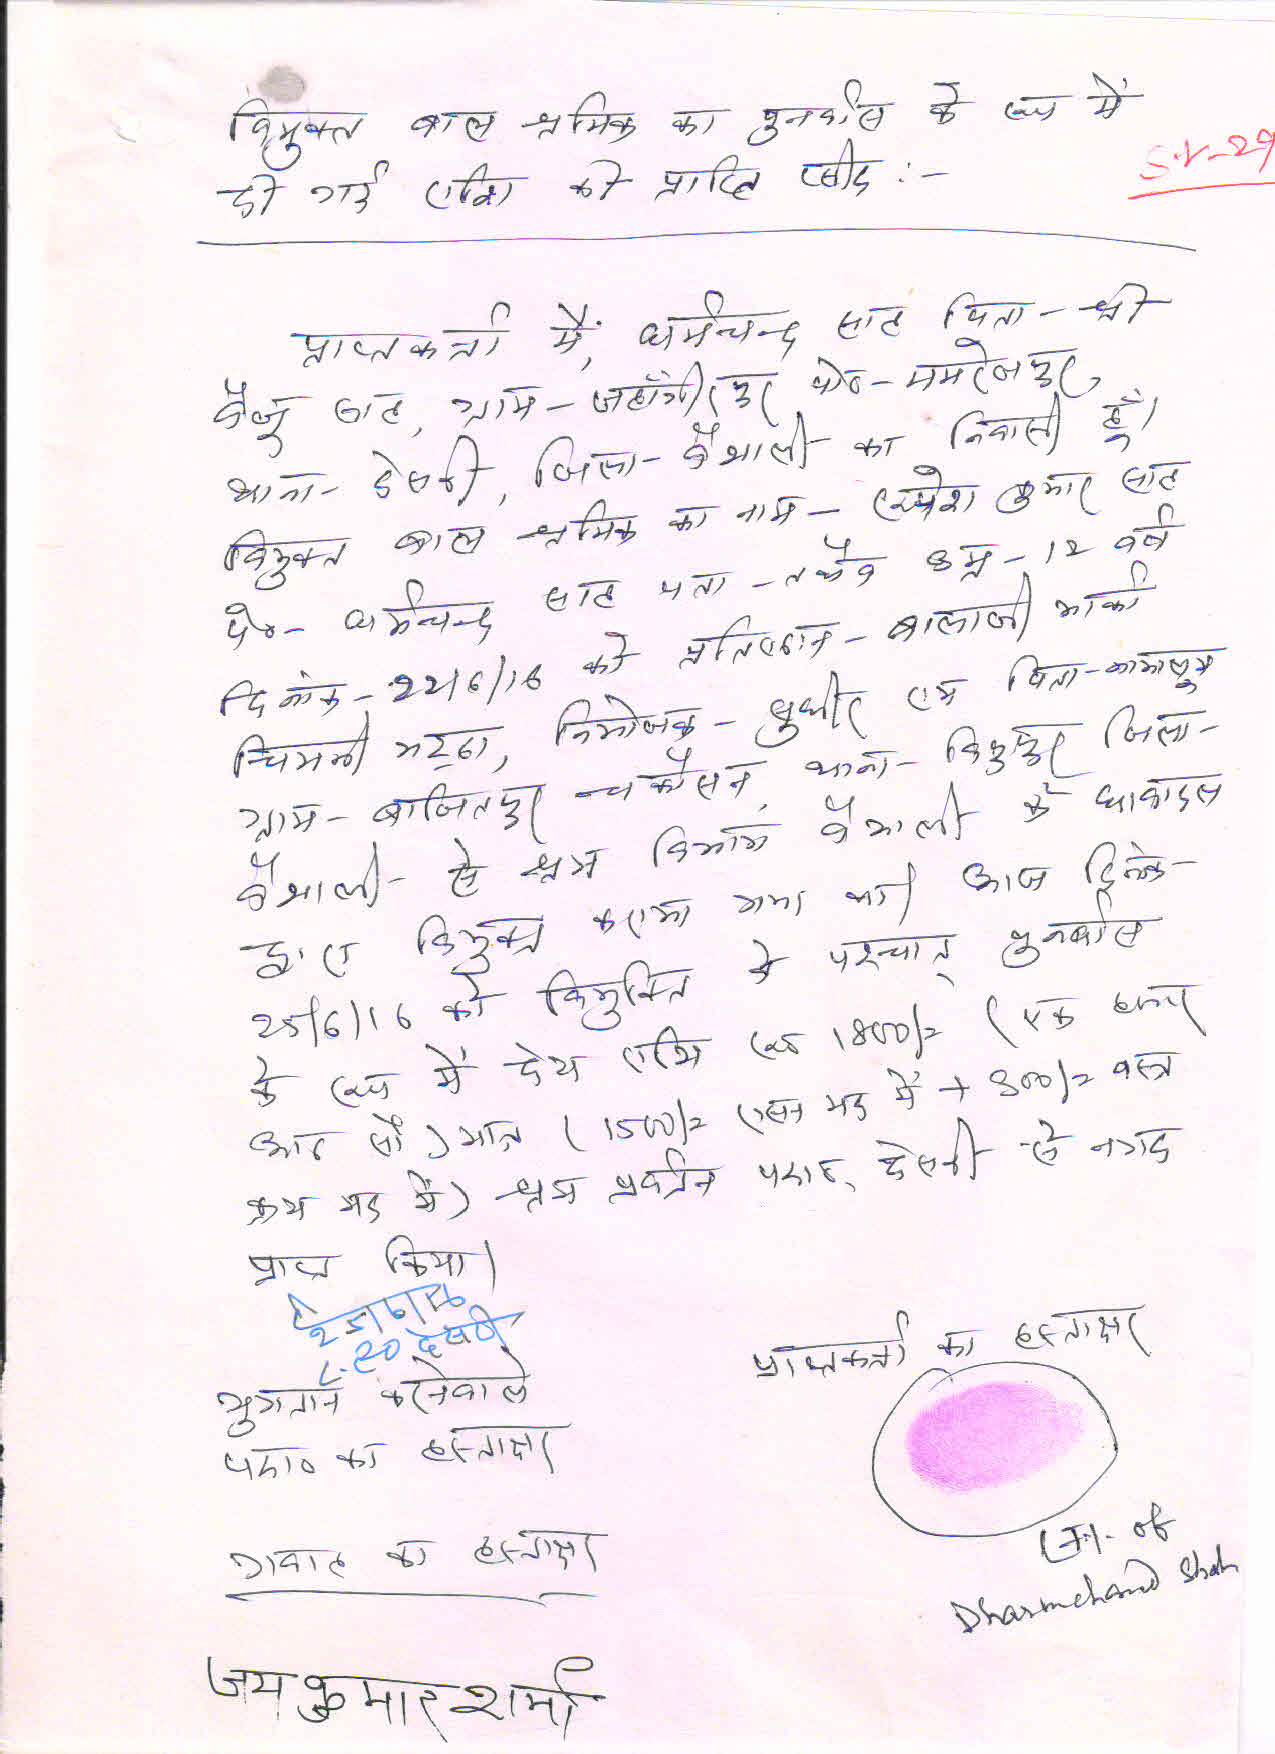 विमुक्त बाल श्रमिक का पुनर्वास के रूप में
दी गई राशि की प्राप्ति रसीद :-
S.N-29
प्राप्तकर्ता मैं, धर्मचन्द साह पिता - श्री
बैजु साह, ग्राम - जहाँगीरपुर पो०-
थाना - देसरी, जिला - वैशाली का निवासी हूँ।
विमुक्त बाल श्रमिक का नाम - कुमार साह
पे०- धर्मचन्द साह पता - तथैव उम्र - 12 वर्ष
दिनांक - 22/6/16 को प्रतिष्ठान - बालाजी मार्का
चिमनी भट्ठा, नियोजक - सुधीर राम पिता -
ग्राम - बाजितपुर चकौसन, थाना - बिदुपुर जिला -
वैशाली - से श्रम विभाग वैशाली के धावादल
द्वारा विमुक्त कराया गया था। आज दिनांक -
25/6/16 को विमुक्ति के पश्चात् पुनर्वास
के रूप में देय राशि रू० 1800/= (एक हजार
आठ सौ) मात्र (1500/= मद में + 300/= वस्त्र
क्रय मद में) श्रम प्रवर्तन पदा०, देसरी से नगद
प्राप्त किया।
25/6/16
देसरी
भुगतान करनेवाले
पदा० का हस्ताक्षर
प्राप्तकर्ता का हस्ताक्षर
of
Dharmchand Shah
गवाह का हस्ताक्षर
जय कुमार शर्मा